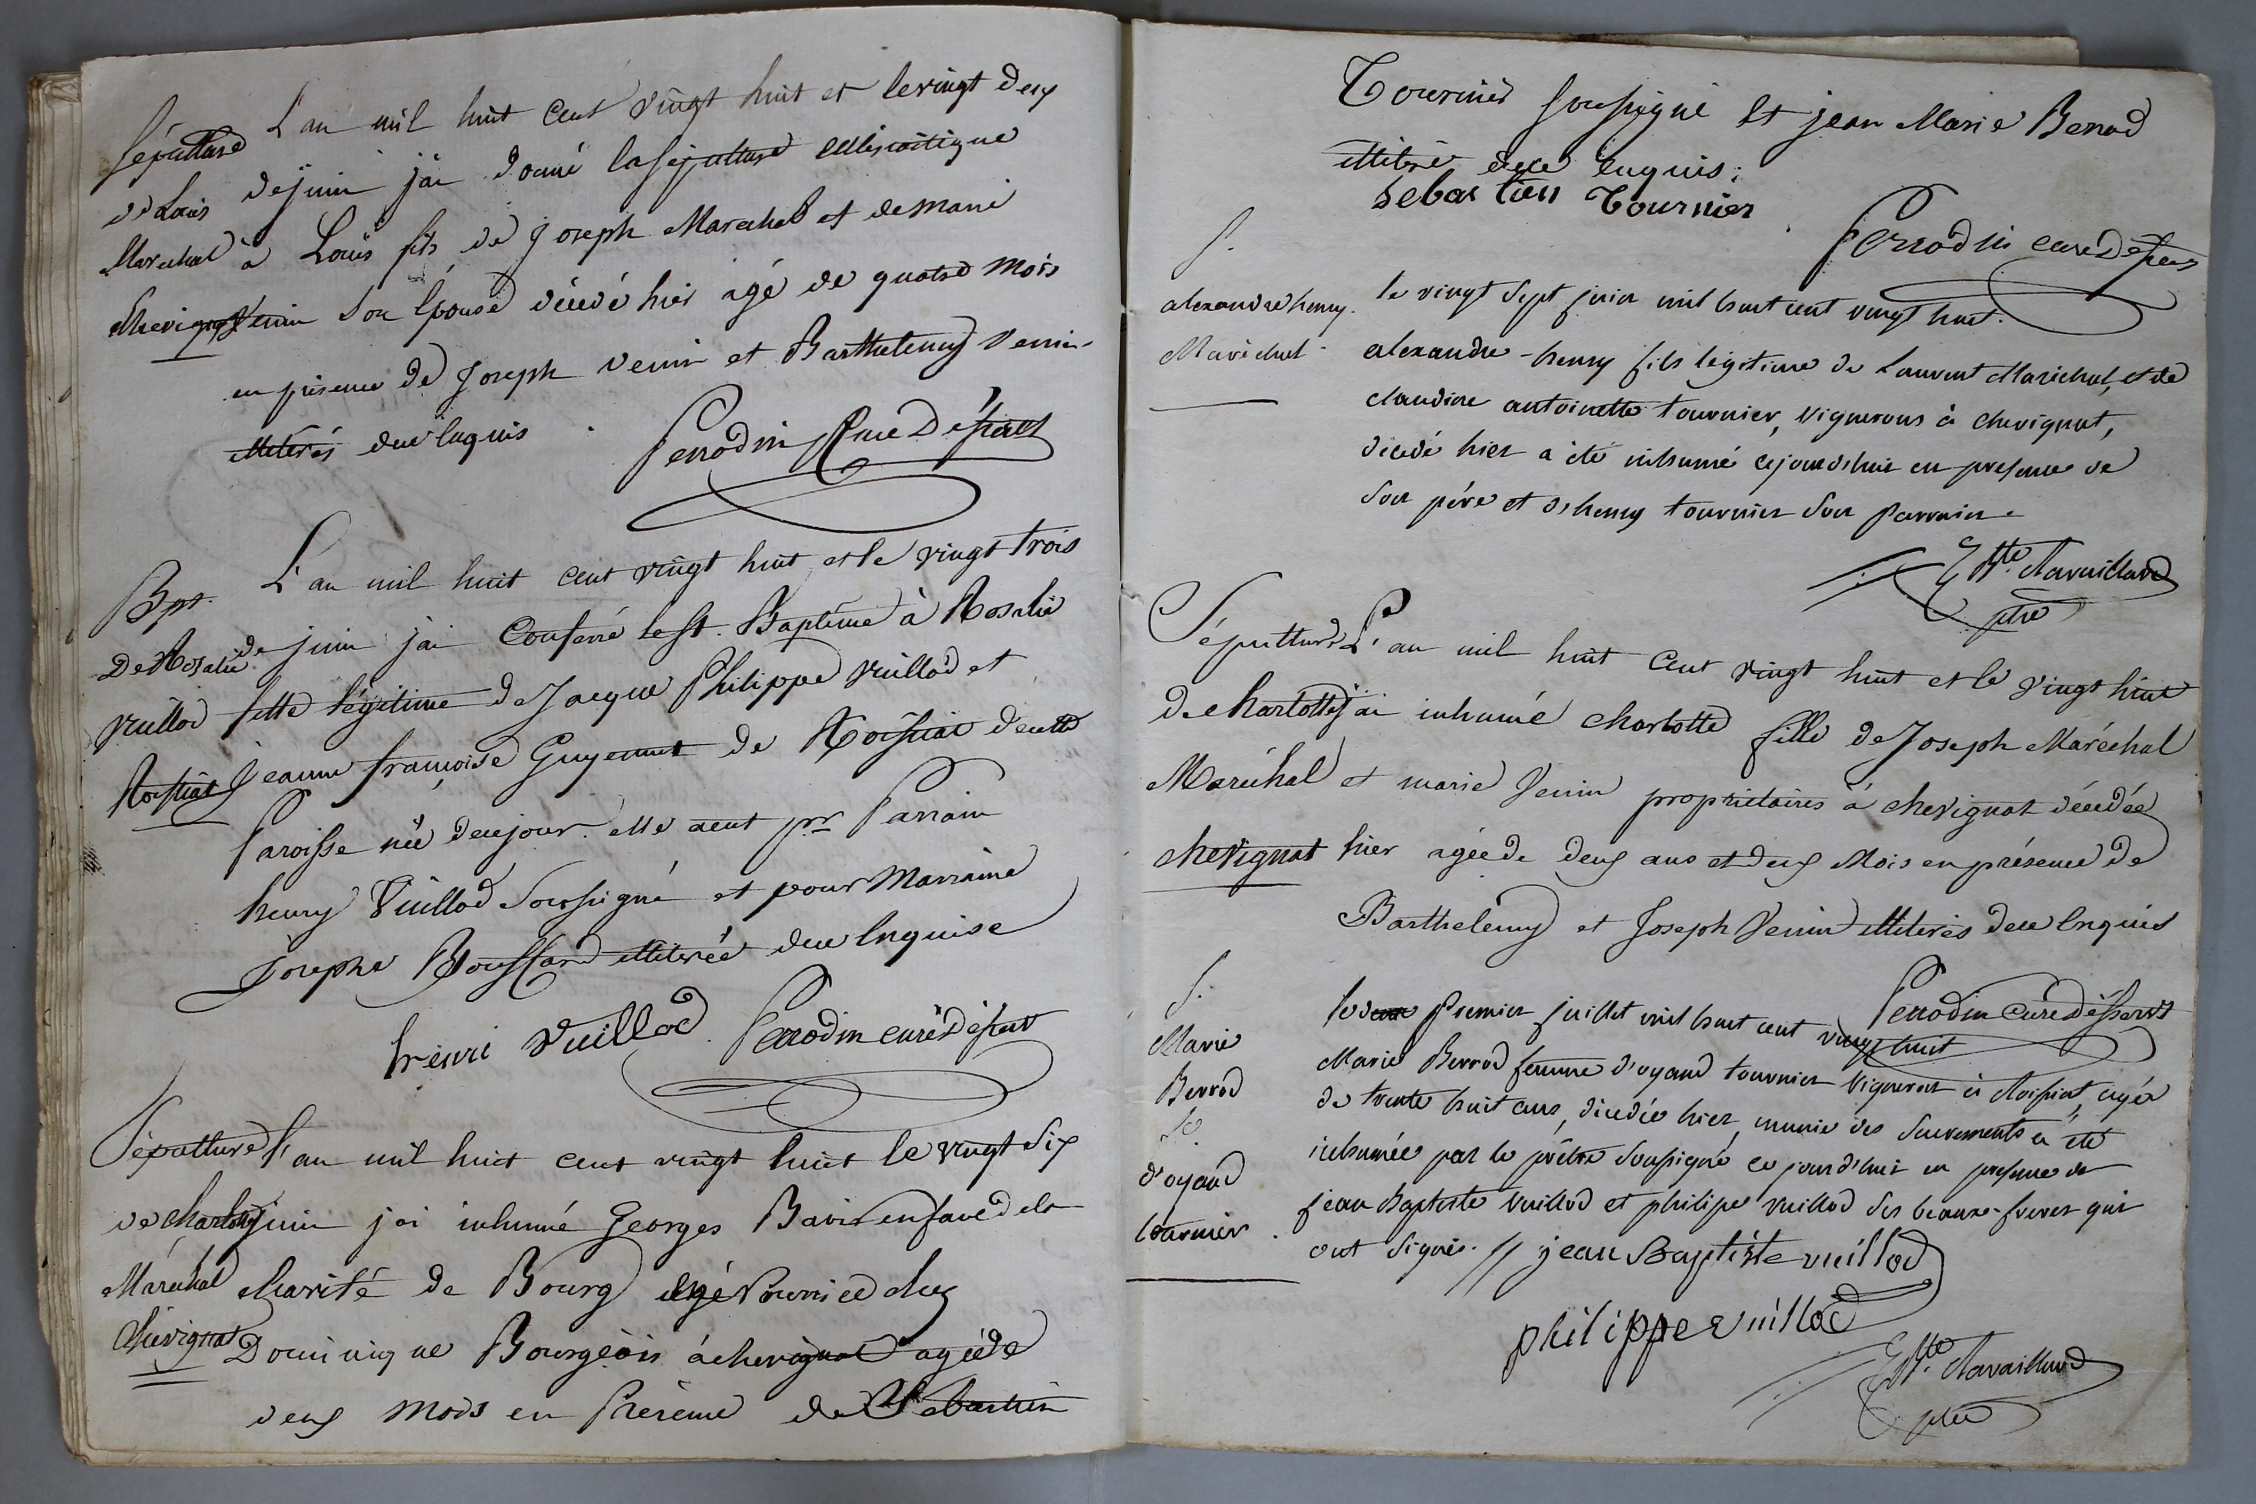 Sépulture
de Louis
Marechal
Chevignat
L'an mil huit cent vingt huit et le vingt deux
de juin j'ai donné la sépulture ecclesiastique
à Louis fils de Joseph Marechal et de marie
Venin son épouse décédé hier agé de quatre mois
en présence de Joseph Venin et Barthelemy Venin
illiterés de ce enquis
Perrodin Curé Désserv
Bpt.
De Rosalie
Vuillod
Roissiat
L'an mil huit cent vingt huit et le vingt trois
de juin j'ai Conferé le St. Baptême à Rosalie
fille légitime de Jacque Philippe Vuillod et
Jeanne françoise Guyennet de Roissiat de cette
Paroisse née de ce jour. elle a eut pr Parrain
henry Vuillod Soussigné et pour Marraine
Josephe Boussard illiterée de ce enquise
henri vuillod Perrodin curé Désserv
Sépulture
de charlotte
Maréchal
Chevignat
L'an mil huit cent vingt huit le vingt six
juin j'ai inhumé Georges Bavir enfant de la
charité de Bourg en Nourrice chez
Dominique Bourgeois à chevignat agé de
deux mois en Présence de Sebastien
Tournier soussigné et jean Marie Benod
illiteré de ce enquis;
Sebastien Tournier
Perrodin curé Désserv
S.
alexandre henry
Maréchal
le vingt sept juin mil huit cent vingt huit
alexandre-henry fils légitime de Laurent Maréchal, et de
claudine antoinette tournier, vignerons à chevignat,
décédé hier a été inhumé cejourd'hui en présence de
son père et d'henry tournier son parrain.
Sépulture
de charlotte
Maréchal
chevignat
L'an mil huit cent vingt huit et le vingt huit
j'ai inhumé charlotte fille de Joseph Maréchal
et marie Venin propriétaires à chevignat décédée
hier agée de deux ans et deux Mois en présence de
Barthelémy et Joseph Venin illiterés de ce Enquis
Perrodin Curé Désservt
S.
Marie
Berrod
fe.
d'oyand
tournier
le premier juillet mil huit cent vingt huit
Marie Berrod femme d'oyand tournier vigneron à Roissiat, agée
de trente huit ans, décédée hier, munie des sacrements a été
inhumée par le prêtre soussigné ce jourd'hui en présence de
jean Baptiste vuillod et philipe vuillod ses beaux-freres qui
ont signés. // jean Baptiste vuillod
philippe vuillod
ptre